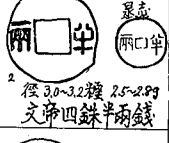 兩 半
景志
兩 半
2
徑 3.0~3.2糎 2.5~2.8g
文帝四銖半兩錢